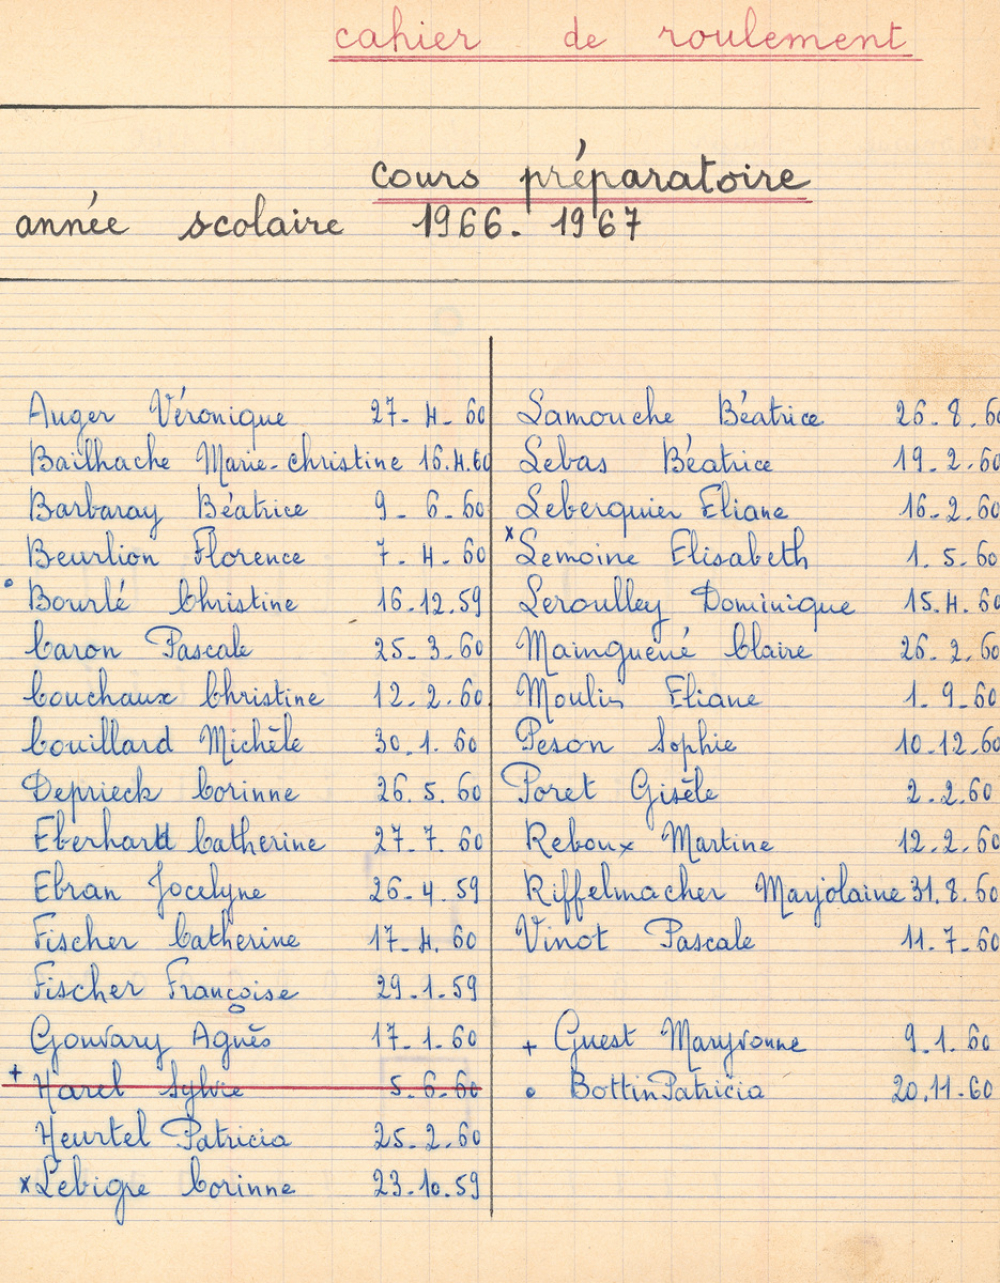 cahier de roulement
cours préparatoire
année scolaire 1966. 1967
Auger Véronique 27-4-60
Bailhache Marie-christine 16.4.60
Barbaray Béatrice 9-6-60
Beurlion Florence 7-4-60
• Bourlé Christine 16.12.59
Caron Pascale 25-3-60
Couchaux Christine 12.2.60
Couillard Michèle 30.1.60
Deprieck Corinne 26.5.60
Eberhard Catherine 27-7.60
Ebran Jocelyne 26-4.59
Fischer Catherine 17-4.60
Fischer Françoise 29.1.59
Gouvary Agnès 17-1-60
+ Harel Sylvie 5.6.60
Heurtel Patricia 25.2.60
x Lebigre Corinne 23.10.59
Lamouche Béatrice 26.8.60
Lebas Béatrice 19.2.60
Leberquier Eliane 16-2.60
x Lemoine Elisabeth 1.5.60
Leroulley Dominique 15.4.60
Mainguené Claire 26.2.60
Moulin Eliane 1.9.60
Peson Sophie 10.12.60
Poret Gisèle 2.2.60
Reboux Martine 12.2.60
Riffelmacher Marjolaine 31.8.60
Vinot Pascale 11.7-60
+ Guest Maryvonne 9.1.60
• Bottin Patricia 20.11-60